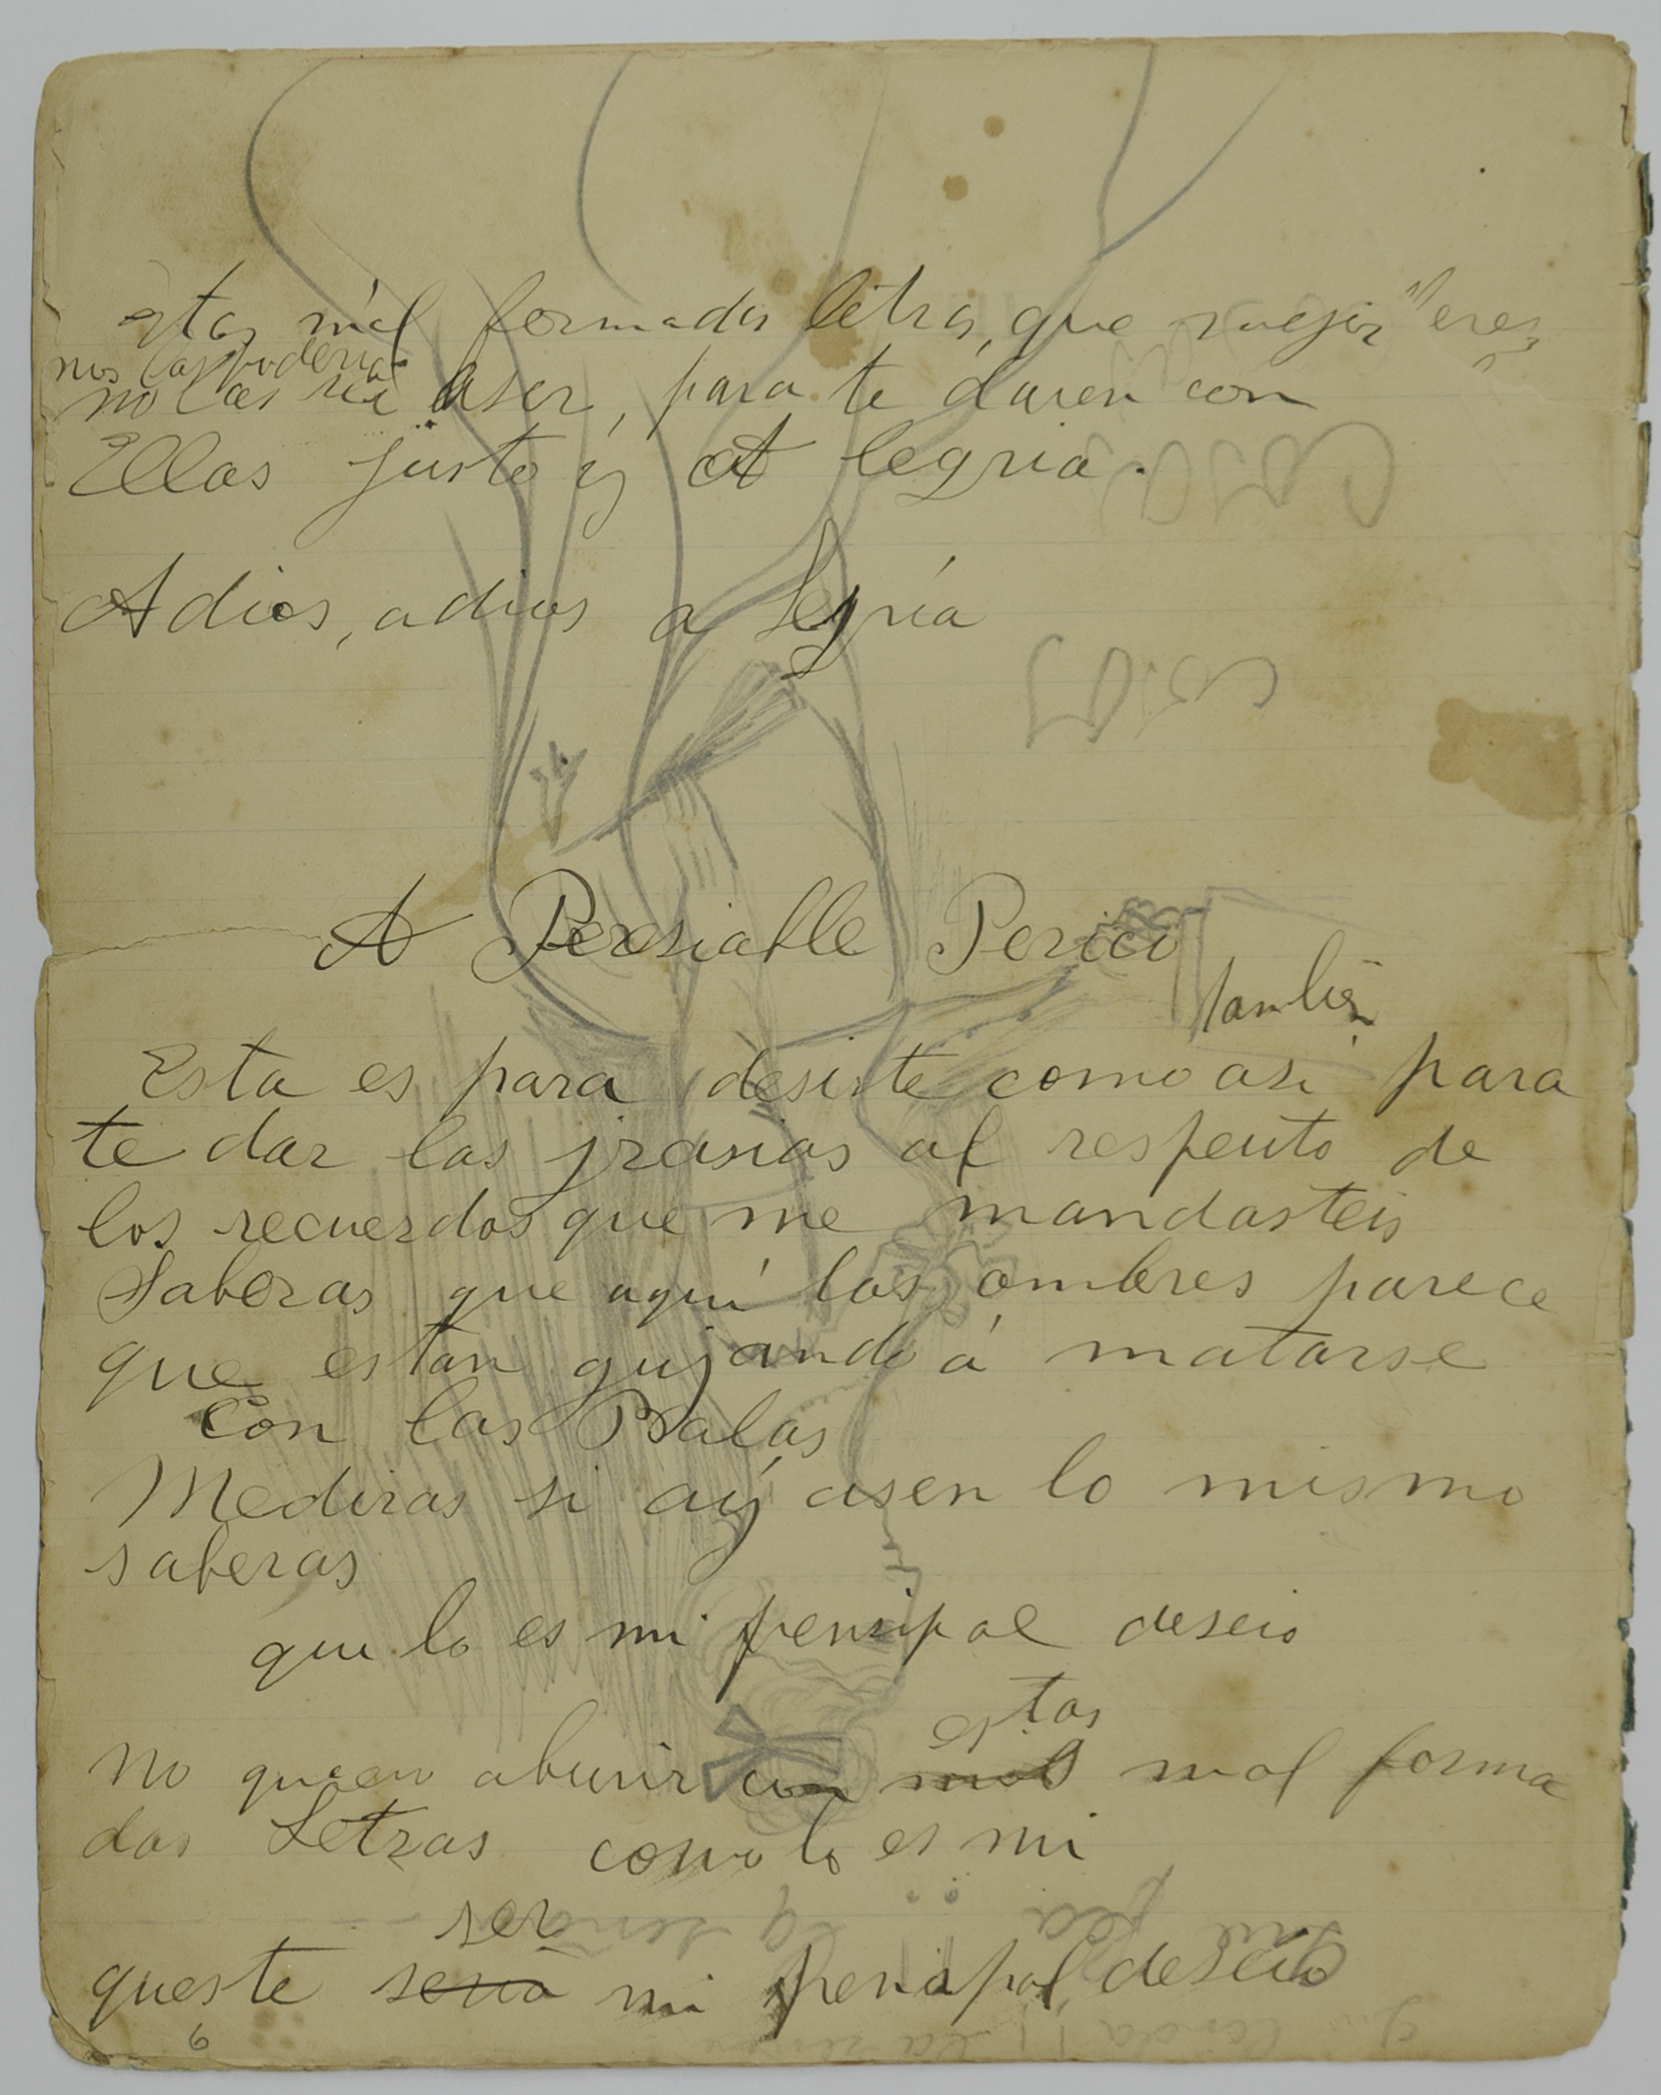 estas mal formadas letras, que mejor "eres
nos las poderia
no las se aser, para te daren con
Ellas justo y A legria.
Adios, adios a legría
A Peresiable Perico
tambien
Esta es para desirte como asi para
te dar las jrasias al respeuto de
los recuerdos que me mandasteis
Saberas que aquí los ombres parece
que estan gujando á matarse
Con las Balas
Mediras si aiy asen lo mismo
saberas
que lo es mi penripal deseio
estas
no quiero aburir con mal forma
das Letras como lo es mi
ser
queste seria mi penripal deseio
6